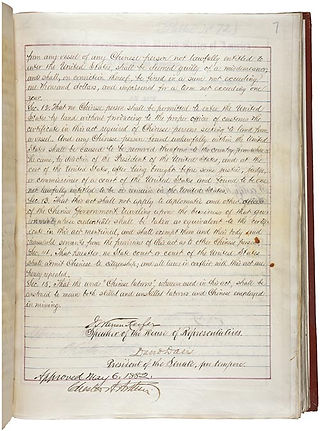 7
from any vessel of any Chinese person not lawfully entitled to
enter the United States, shall be deemed guilty of a misdemeanor,
and shall, on conviction thereof, be fined in a sum not exceeding
one thousand dollars, and imprisoned for a term not exceeding one
year.
Sec. 12. That no Chinese person shall be permitted to enter the United
States by land without producing to the proper officer of customs the
certificate in this act required of Chinese persons seeking to land from
a vessel. And any Chinese person found unlawfully within the United
States shall be caused to be removed therefrom to the country from whence
he came, by direction of the President of the United States, and at the
cost of the United States, after being brought before some justice, judge,
or commissioner of a court of the United States and found to be one
not lawfully entitled to be or remain in the United States.
Sec. 13. That this act shall not apply to diplomatic and other officers
of the Chinese Government traveling upon the business of that government,
whose credentials shall be taken as equivalent to the certifi-
cate in this act mentioned, and shall exempt them and their body and
household servants from the provisions of this act as to other Chinese persons.
Sec. 14. That hereafter no State court or court of the United States
shall admit Chinese to citizenship; and all laws in conflict with this act are
hereby repealed.
Sec. 15. That the words "Chinese laborers", wherever used in this act, shall be
construed to mean both skilled and unskilled laborers and Chinese employed
in mining.
J. Warren Keifer
Speaker of the House of Representatives.
David Davis
President of the Senate, pro tempore.
Approved May 6, 1882.
Chester A. Arthur